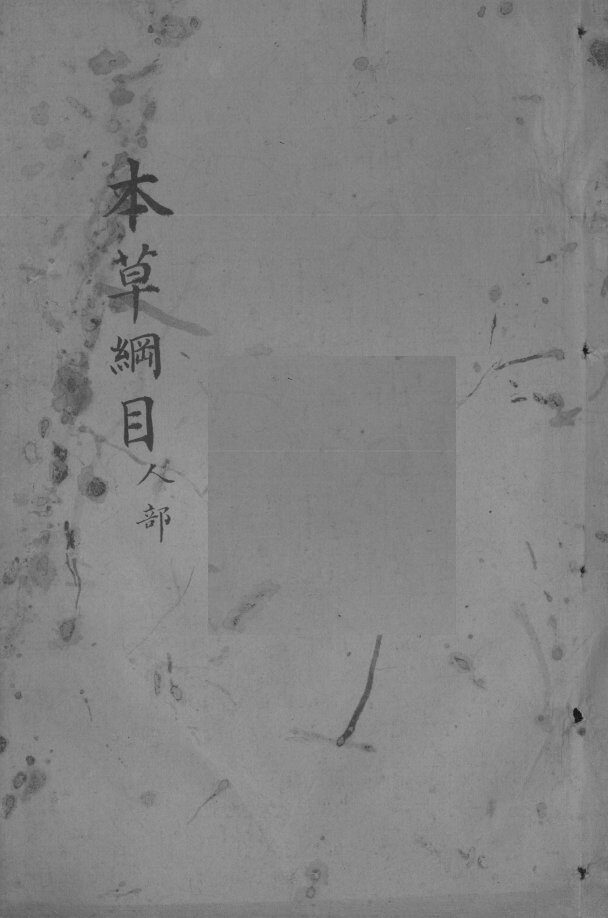 本草綱目人部